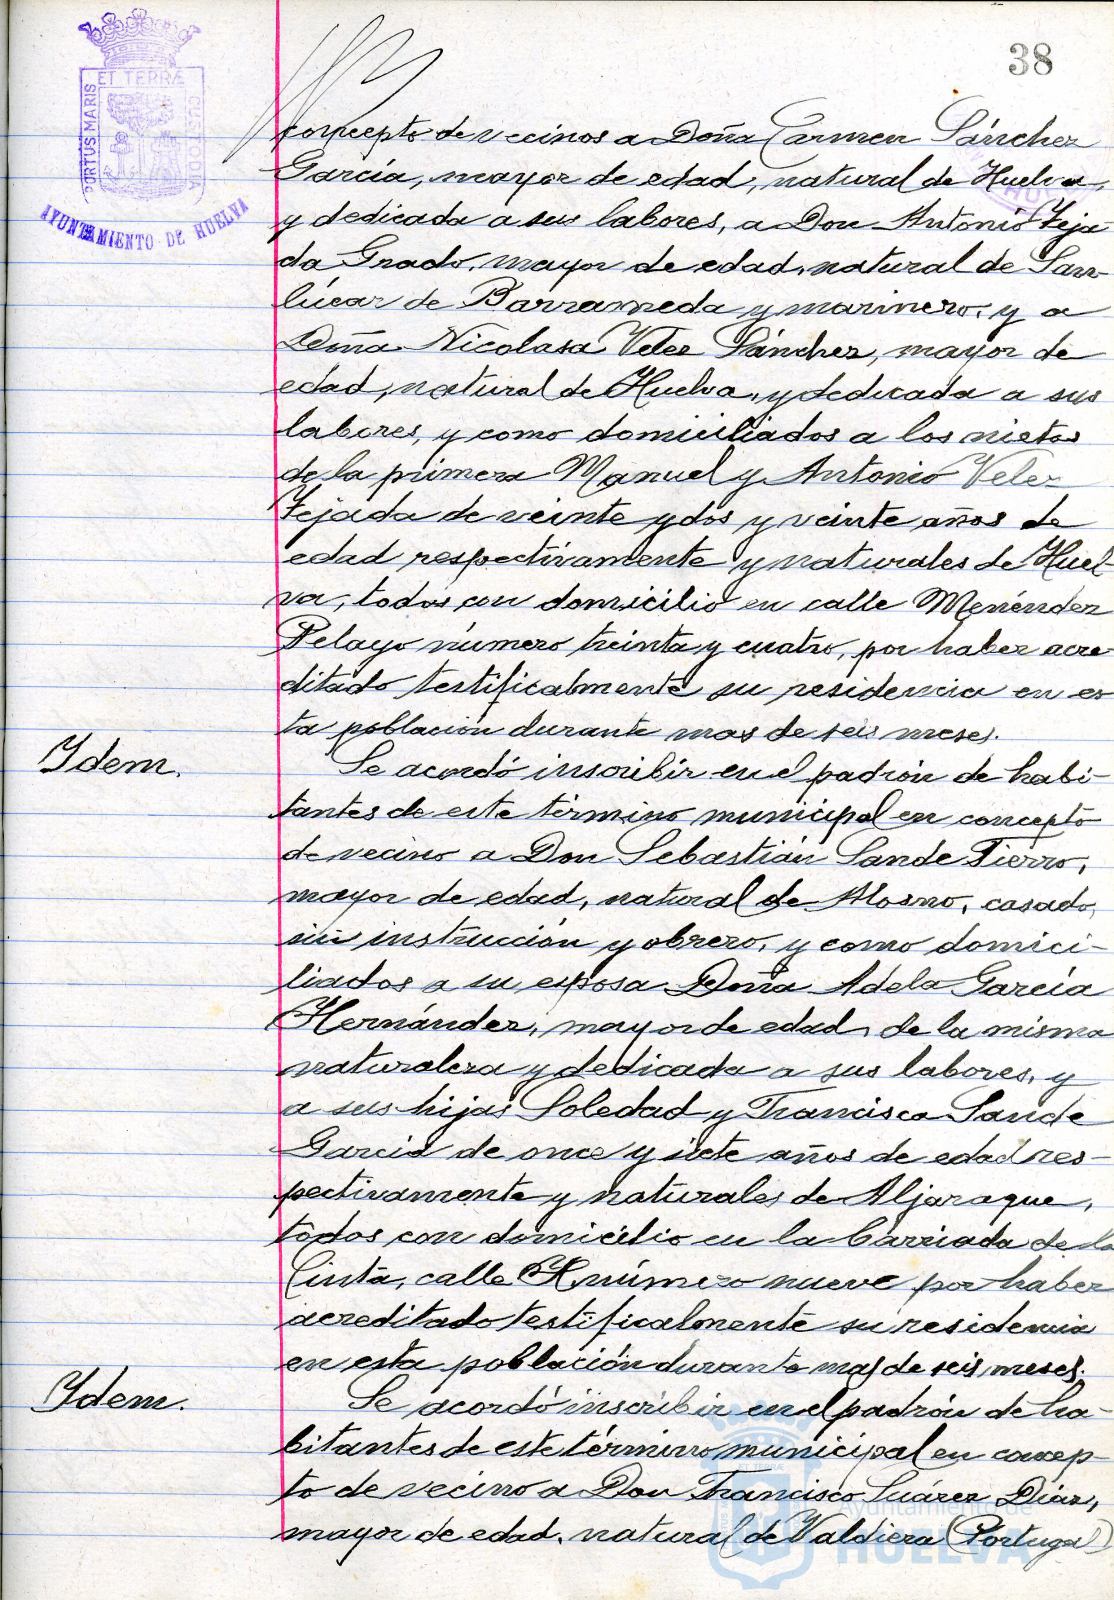 38
ET TERRÆ
PORTUS MARIS
CUSTODIA
AYUNTAMIENTO DE HUELVA
concepto de vecinos a Doña Carmen Sánchez
García, mayor de edad, natural de Huelva,
y dedicada a sus labores, a Don Antonio Teja
da Grado, mayor de edad, natural de San-
lúcar de Barrameda y marinero, y a
Doña Nicolasa Velez Sánchez, mayor de
edad, natural de Huelva, y dedicada a sus
labores, y como domiciliados a los nietos
de la primera Manuel y Antonio Velez
Tejada de veinte y dos y veinte años de
edad respectivamente y naturales de Huel-
va, todos con domicilio en calle Menéndez
Pelayo número treinta y cuatro, por haber acre-
ditado testificalmente su residencia en es-
ta población durante mas de seis meses.
Idem.
Se acordó inscribir en el padrón de habi-
tantes de este término municipal en concepto
de vecino a Don Sebastián Sande Fierro,
mayor de edad, natural de Alosno, casado,
sin instrucción y obrero, y como domici-
liados a su esposa Doña Adela García
Hernández, mayor de edad, de la misma
naturaleza y dedicada a sus labores, y
a sus hijas Soledad y Francisca Sande
García de once y siete años de edad res-
pectivamente y naturales de Aljaraque,
todos con domicilio en la barriada de la
Cinta, calle H número nueve por haber
acreditado testificalmente su residencia
en esta población durante mas de seis meses.
Idem.
Se acordó inscribir en el padrón de ha-
bitantes de este término municipal en concep-
to de vecino a Don Francisco Suárez Díaz,
mayor de edad, natural de Valdiera (Portugal)
Ayuntamiento de
HUELVA